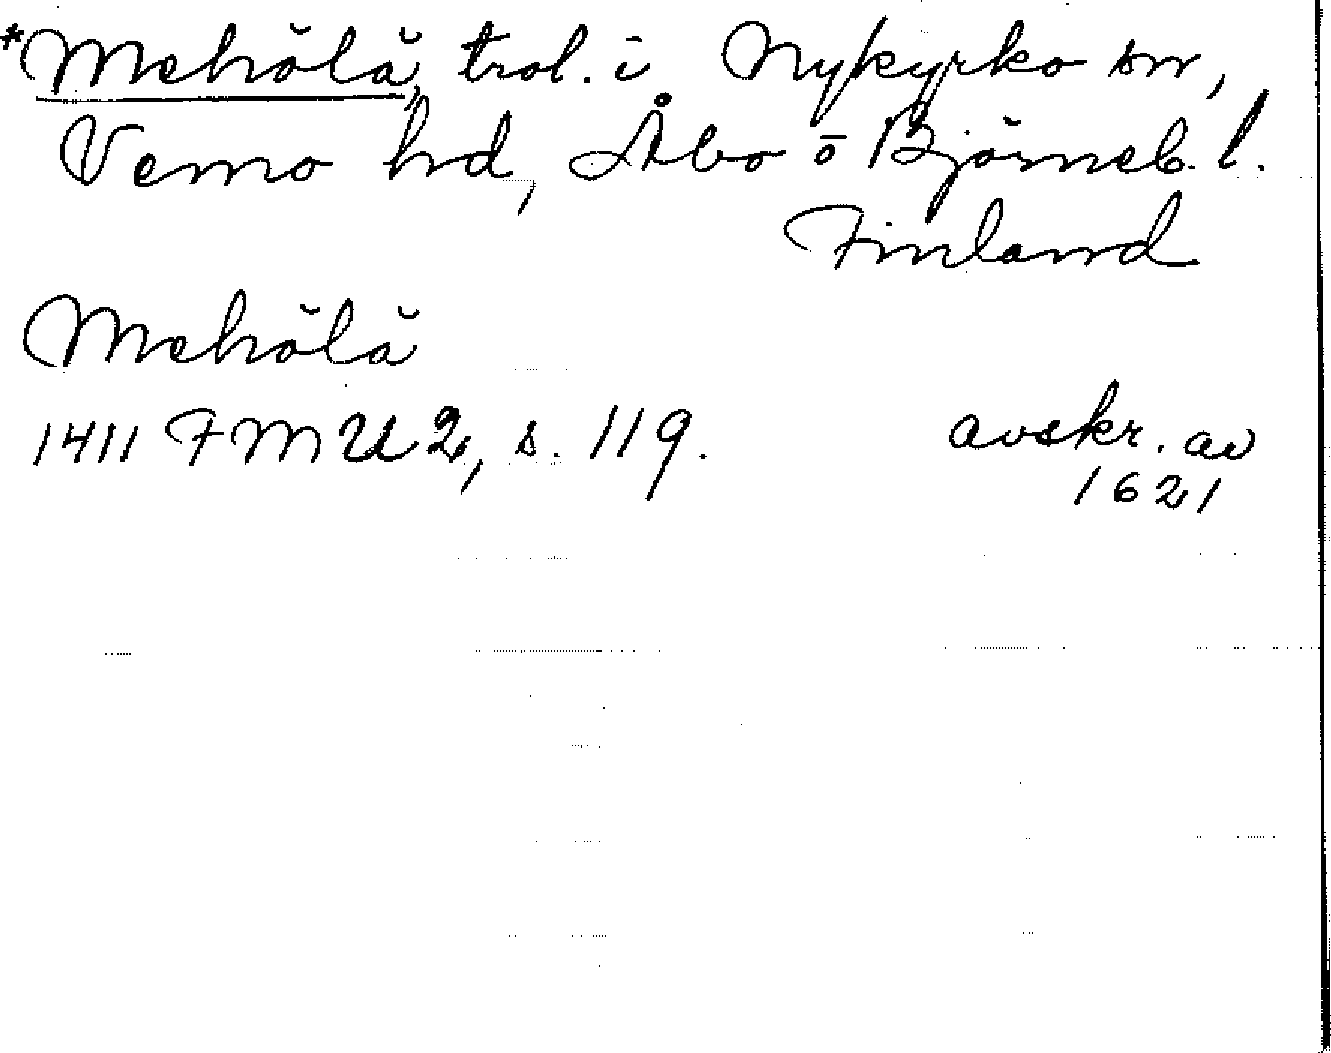 *Mehölä, trol. i Nykyrko sn,
Vemo hd, Åbo o Björneb. l.
Finland
Mehölä
1411 FMU 2, s. 119. avskr. av
1621